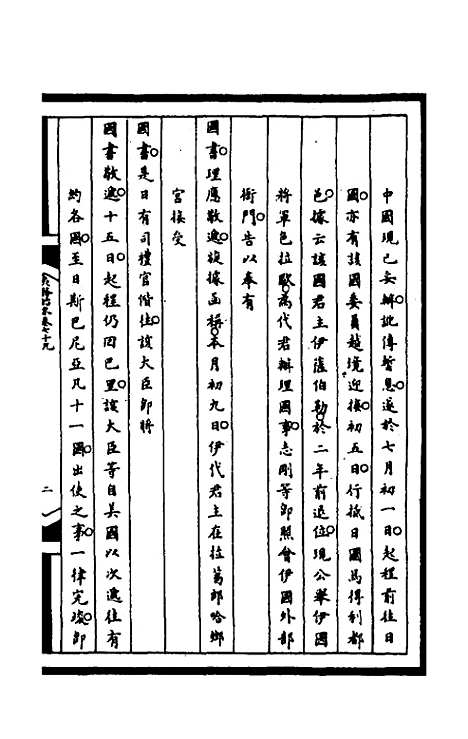 中國現已妥辦訛傳暫息遂於七月初一日起程前往日
國亦有該國委員越境迎接初五日行抵日國馬得利都
邑據云該國君主伊薩伯勒於二年前退位現公舉伊國
將軍色拉歐為代君辦理國事志剛等即照會伊國外部
衙門告以奉有
國書理應敬遞旋據函稱本月初九日伊代君主在拉葛郎哈鄉
宮接受
國書是日有司禮官偕往該大臣即將
國書敬遞十五日起程仍回巴里該大臣等自美國以次遞往有
約各國至日斯巴尼亞凡十一國出使之事一律完竣即
夷務始末卷七十九
二